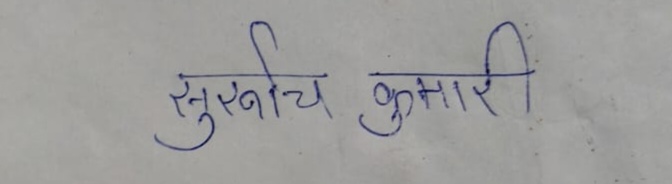 सुरूचि कुमारी